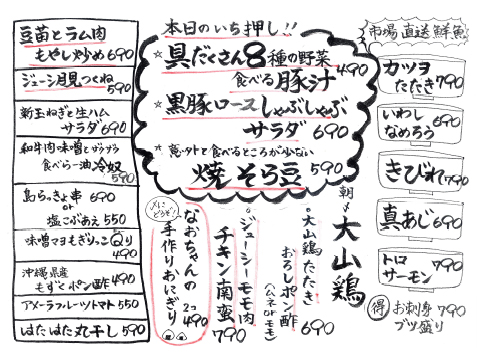 豆苗とラム肉
もやし炒め 690
ジューシ月見つくね
590
新玉ねぎと生ハム
サラダ 690
和牛肉味噌とザクザク
食べらー油冷奴
590
島らっきょ串 690
or
塩こぶあえ 550
味噌マヨもぎりっこQり
490
沖縄県産
もずくポン酢 490
アメーラフルーツトマト 550
はたはた丸干し 590
本日のいち押し!!
☆具だくさん8種の野菜
食べる豚汁 490
☆黒豚ロースしゃぶしゃぶ
サラダ 690
☆意外と食べるところが少ない
焼そら豆 590
〆にどうぞ!
なおちゃんの
手作りおにぎり
2コ 490
・ジューシーモモ肉
チキン南蛮
790
朝〆大山鶏
・大山鶏たたき
おろしポン酢
(ムネorモモ)
690
市場直送鮮魚
カツヲ
たたき 790
いわし
なめろう 690
きびれ 790
真あじ 690
トロ
サーモン 790
得 お刺身
ブツ盛り 790